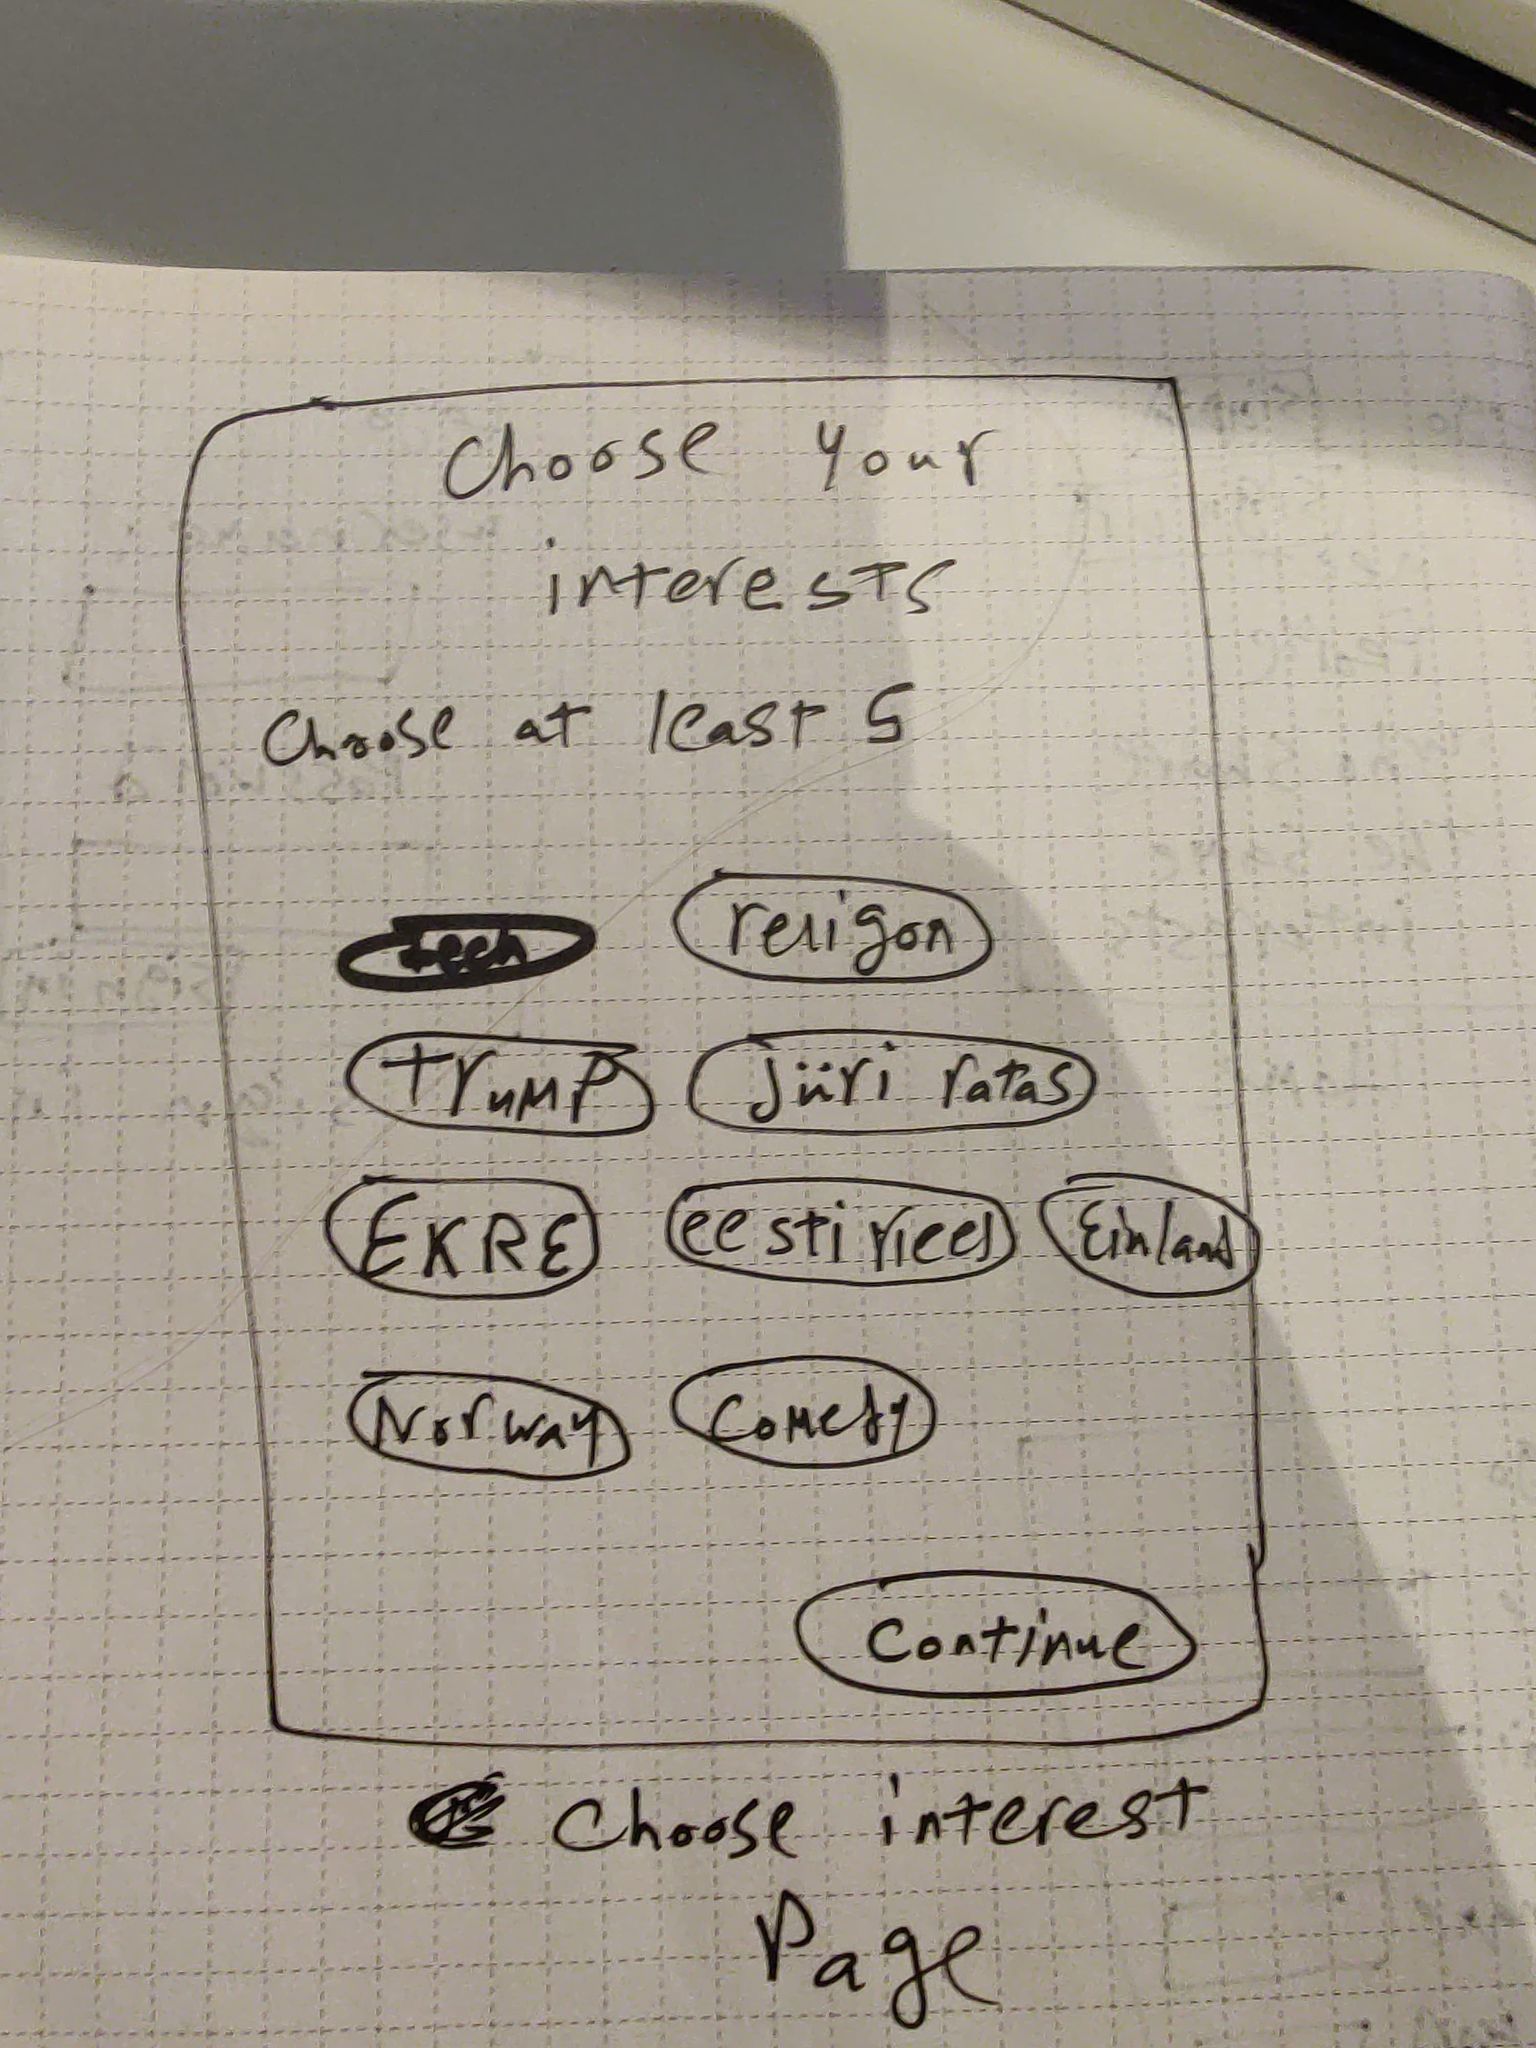 Choose your
interests
Choose at least 5
tech religon
trump jüri ratas
EKRE eesti
Norway Comedy
Continue
Choose interest
Page